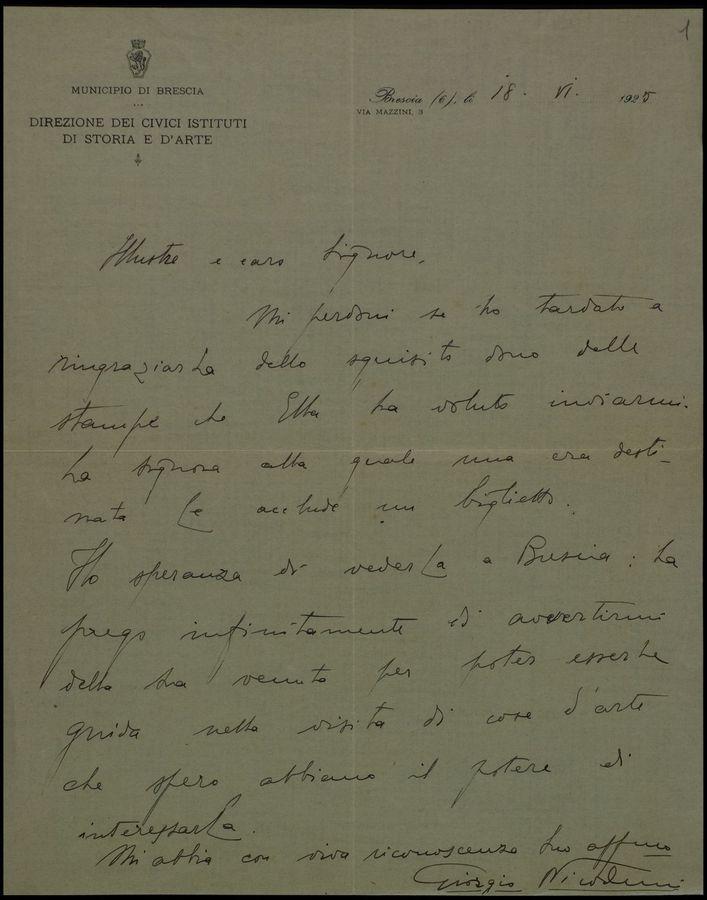 1
MUNICIPIO DI BRESCIA
DIREZIONE DEI CIVICI ISTITUTI
DI STORIA E D'ARTE
Brescia (6), li 18. VI. 1925
VIA MAZZINI, 3
Illustre e caro Signore,
Mi perdoni se ho tardato a
ringraziarLa dello squisito dono delle
stampe che Ella ha voluto inviarmi.
La signora alla quale una era desti-
nata Le acclude un biglietto.
Ho speranza di vederLa a Brescia: La
prego infinitamente di avvertirmi
della Sua venuta per poter esserLe
guida nella visita di cose d'arte
che spero abbiano il potere di
interessarLa.
Mi abbia con viva riconoscenza Suo affmo
Giorgio Nicodemi